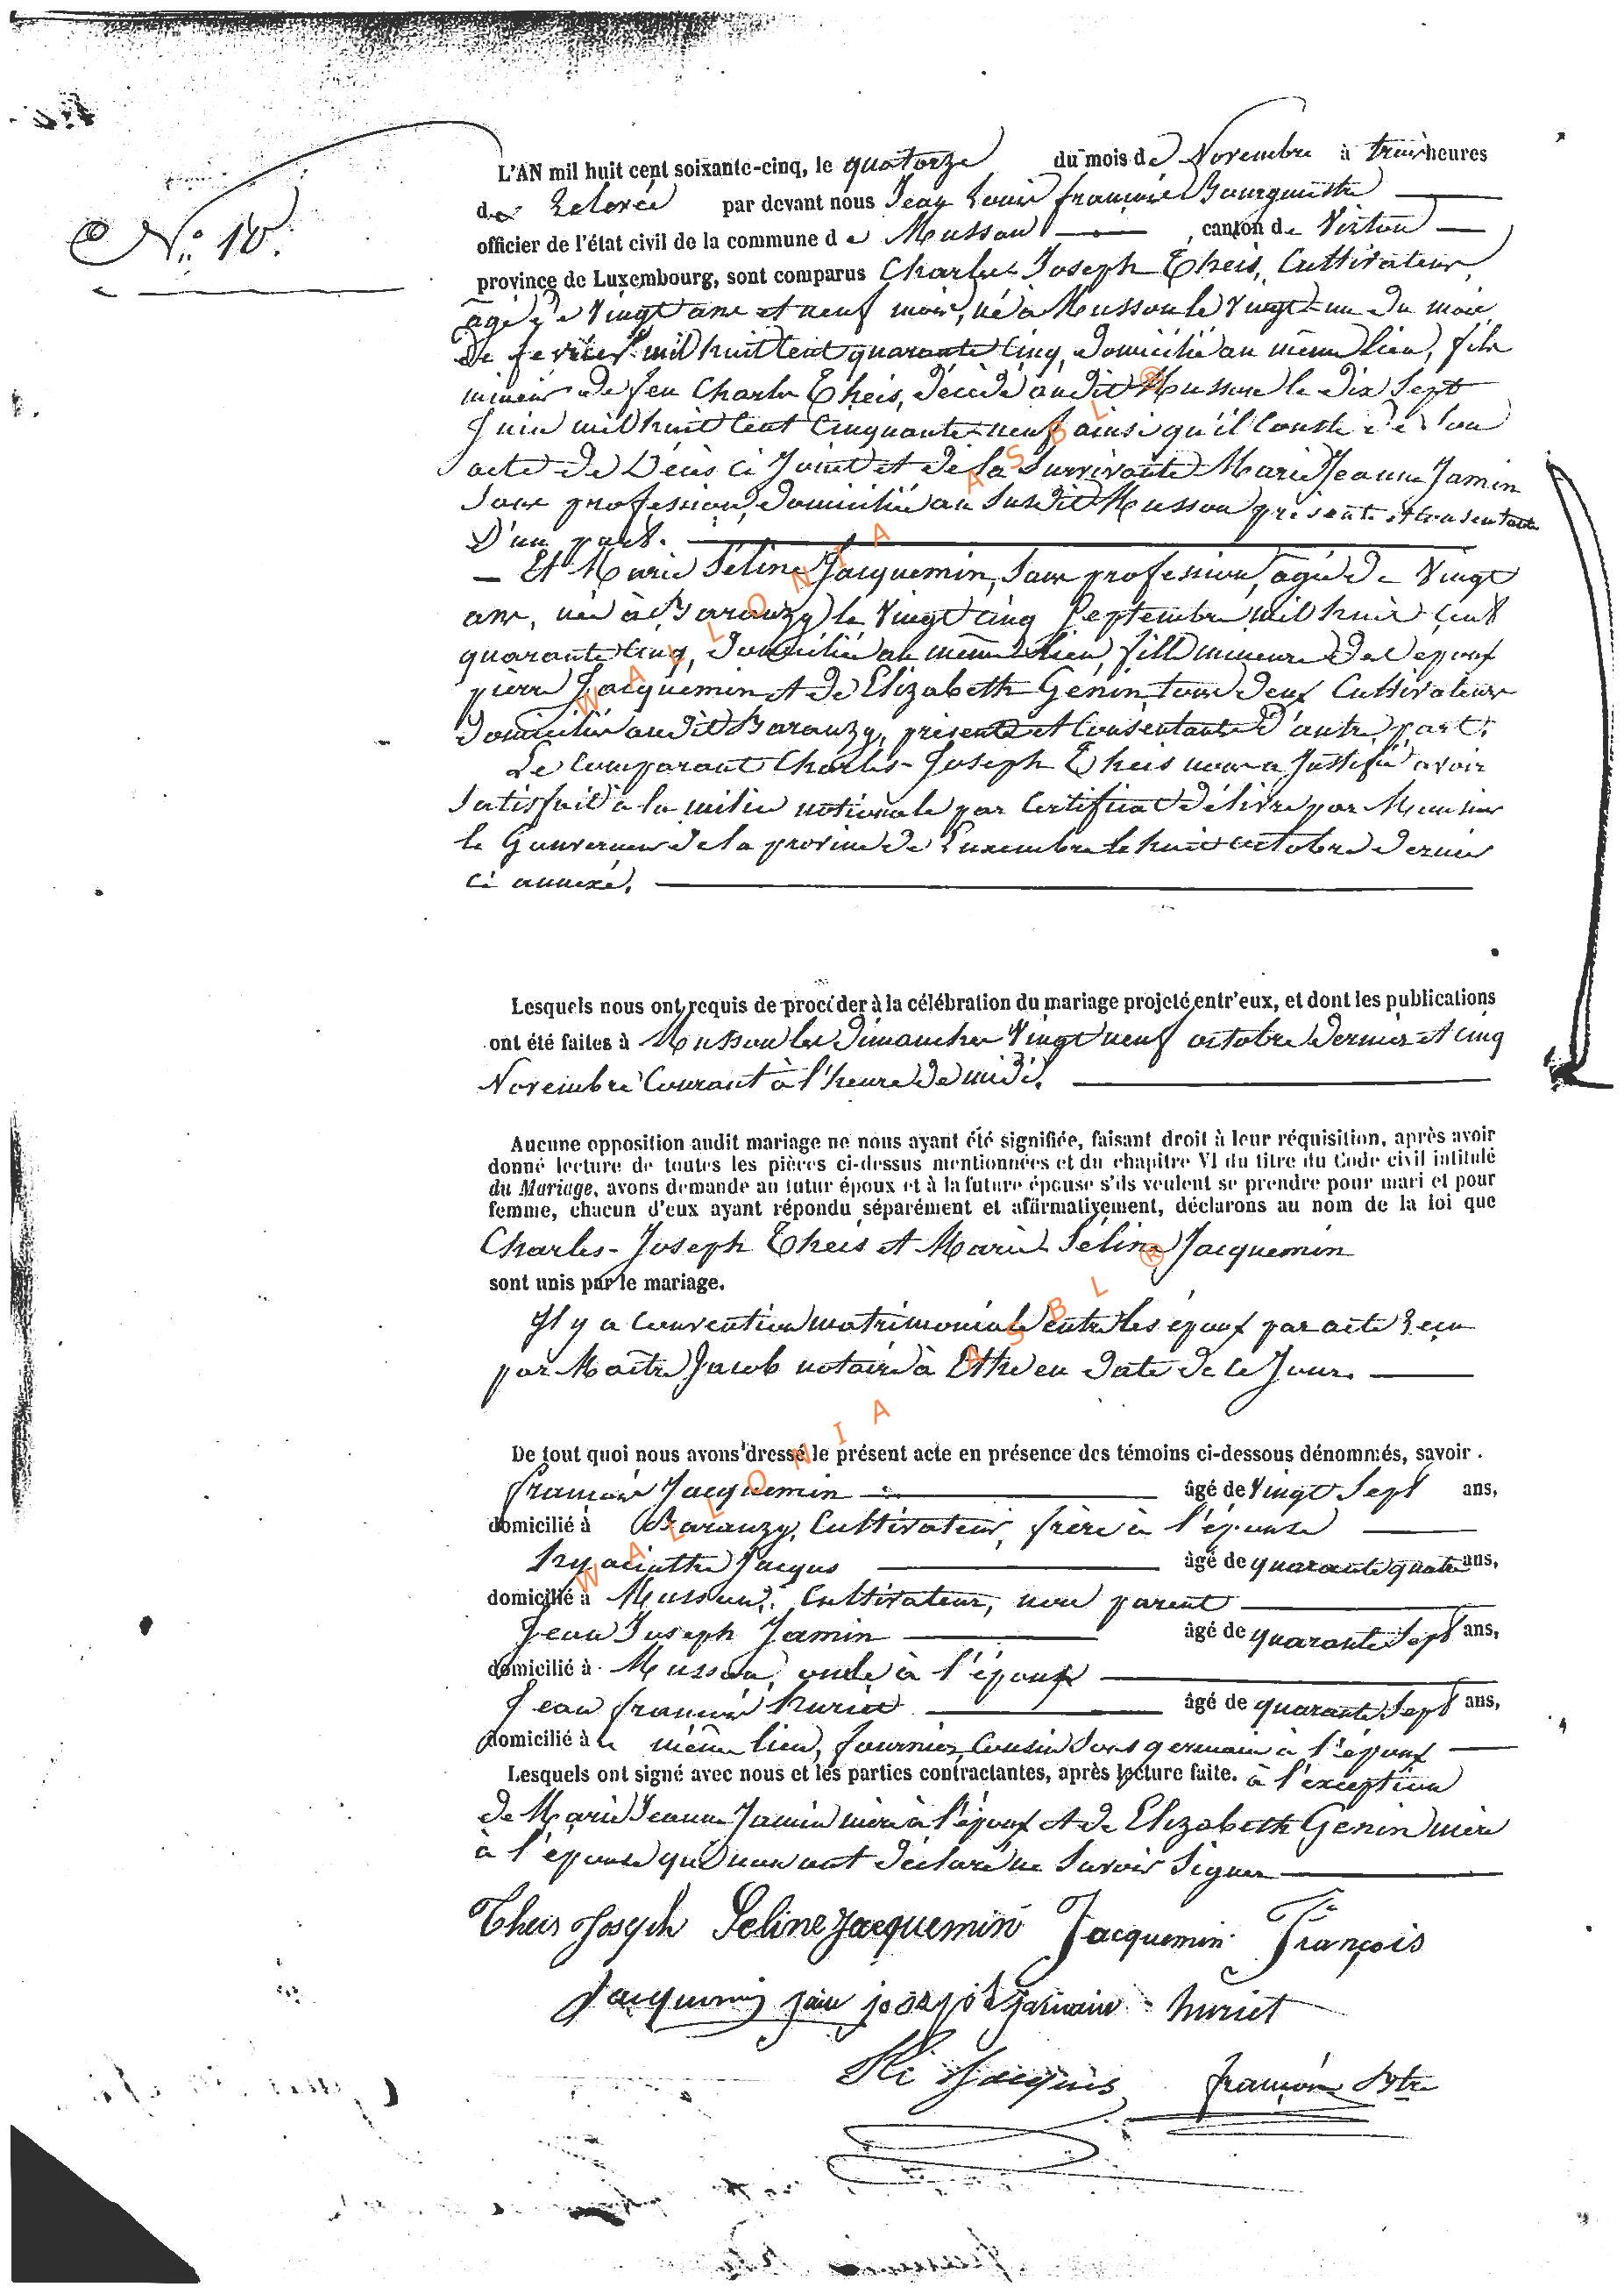 L'AN mil huit cent soixante-cinq, le quatorze du mois de Novembre à trois heures
de Relevée par devant nous Jean Louis françois Bourguestre
officier de l'état civil de la commune de Musson, canton de Virton
province de Luxembourg, sont comparus Charles-Joseph Theis, Cultivateur,
N.° 10.
âgé de Vingt ans et neuf mois, né à Musson le Vingt-un du mois
de fevrier mil huit cent quarante Cinq, domicilié au même lieu, fils
mineur de feu Charles Theis, décédé audit Musson le dix Sept
Juin mil huit Cent Cinquante-neuf ainsi qu'il Conste de Son
acte de Décès ci Joint et de la Survivante Marie Jeanne Jamin
Sans profession, domiciliée au Susdit Musson présente et Consentante
D'une part.
— Et Marie Séline Jacquemin, Sans profession, âgée de Vingt
ans, née à Baranzy le Vingt Cinq Septembre mil huit Cent
quarante Cinq, domiciliée au même lieu, fille mineure des époux
pierre Jacquemin et de Elizabeth Génin, tous deux Cultivateurs
domiciliés audit Baranzy, présents et Consentants D'autre part.
Le Comparant Charles-Joseph Theis nous a Justifié avoir
Satisfait à la milice nationale par Certificat délivré par Monsieur
le Gouverneur de la province de Luxembourg le huit octobre dernier
ci annexé.
Lesquels nous ont requis de procéder à la célébration du mariage projeté entr'eux, et dont les publications
ont été faites à Musson les Dimanches Vingt neuf octobre dernier et Cinq
Novembre Courant à l'heure de midi.
Aucune opposition audit mariage ne nous ayant été signifiée, faisant droit à leur réquisition, après avoir
donné lecture de toutes les pièces ci-dessus mentionnées et du chapitre VI du titre du Code civil intitulé
du Mariage, avons demande au futur époux et à la future épouse s'ils veulent se prendre pour mari et pour
femme, chacun d'eux ayant répondu séparément et affirmativement, déclarons au nom de la loi que
Charles-Joseph Theis et Marie Séline Jacquemin
sont unis par le mariage.
Il y a Convention matrimoniale entre les époux par acte Reçu
par Maître Jacob notaire à Ethe en date de Ce Jour.
De tout quoi nous avons dressé le présent acte en présence des témoins ci-dessous dénommés, savoir.
françois Jacquemin âgé de Vingt Sept ans,
domicilié à Baranzy, Cultivateur, frère à l'épouse
Hyacinthe Jacques âgé de quarante quatre ans,
domicilié à Musson, Cultivateur, non parent
Jean Joseph Jamin âgé de quarante Sept ans,
domicilié à Musson, oncle à l'époux
Jean françois huriet âgé de quarante Sept ans,
domicilié à le même lieu, fournier, Cousin Sous germain à l'époux
Lesquels ont signé avec nous et les parties contractantes, après lecture faite. à l'exception
de Marie Jeanne Jamin mère à l'époux et de Elizabeth Génin mère
à l'épouse qui nous ont déclaré ne Savoir Signer
Theis Joseph Seline Jacquemin Jacquemin François
Jacquemin huriet
Jacques françois
WALLONIA ASBL ®
WALLONIA ASBL ®